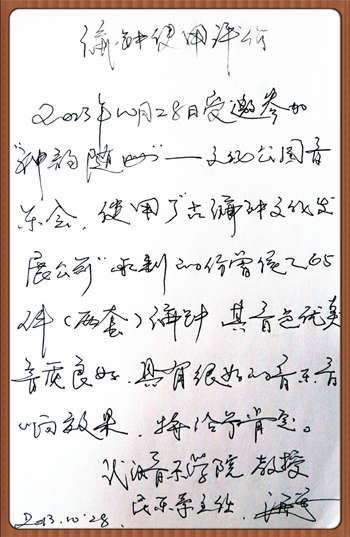 编钟使用评价
2013年10月28日受邀参加
"神韵随州"——文化公园音
乐会,使用了"古编钟文化发
展公司"承制的仿曾侯乙65
件(两套)编钟 其音色优美
音质良好.具有很好的音乐音
响效果,特给予肯定。
武汉音乐学院 教授
民乐系主任
2013.10.28.